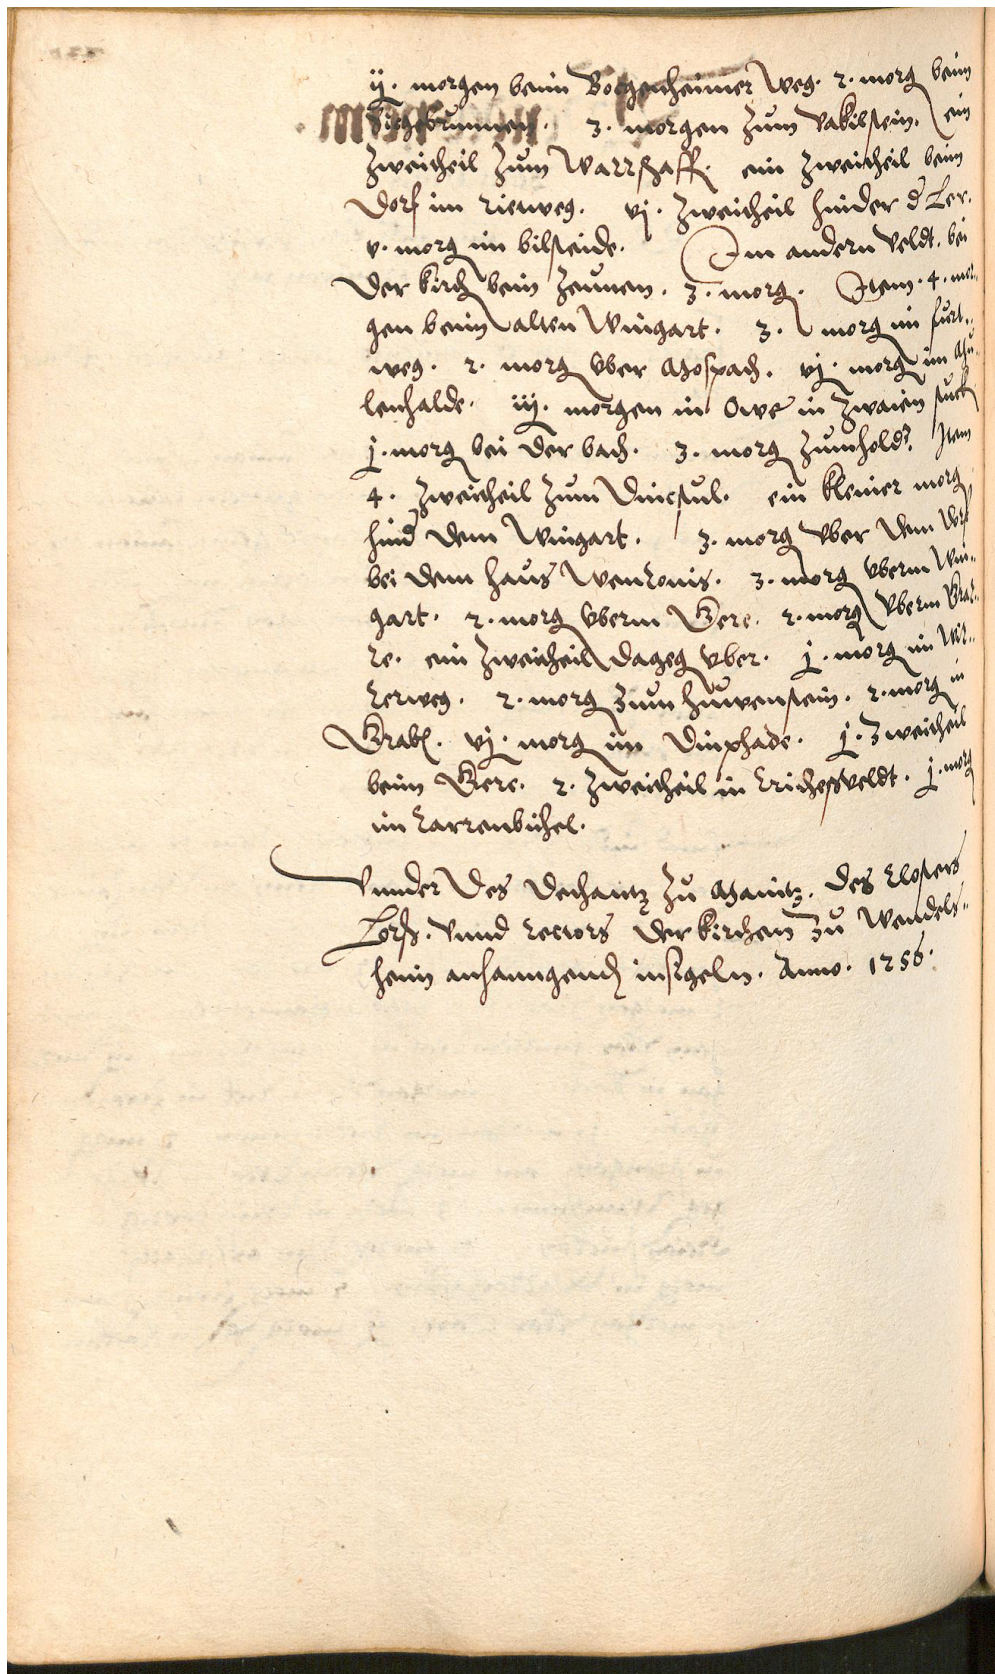 ij. morgen beim Bockenheimer Weg. 2. morg beim
brunnen. 3. morgen zum vakilstein. ein
zweitheil zum Warrschaff. ein zweitheil beim
Dorf im rietweg. vj. zweitheil hinder d Ler.
v. morg im bilsteide. Im andern veldt. bei
der kirch beim Zeunen. 3. morg. Item. 4. mor-
gen beim alten Wingart. 3. morg im furt-
weg. 2. morg vber Mospach. vj. morg im Mu-
lenhalde. iiij. morgen in Owe in zwaien stuck
j. morg bei der bach. 3. morg zumhold. Item
4. zweitheil zum Dincstul. ein kleiner morg
hind dem Wingart. 3. morg vber dem dorf
bei dem haus Wenlonis. 3. morg vberm Win-
gart. 2. morg vberm Gere. 2. morg vberm
re. ein zweitheil dageg vber. j. morg im
lerweg. 2. morg zum huwenstein. 2. morg in
Grab. vj. morg im Dinphade. j. zweitheil
beim Gere. 2. zweitheil in veldt. j. morg
im karrenbuhel.
Vnnder des dechantz zu Maintz. des Closters
Lorsch. vnnd rectors der kirchen zu Wendels-
heim anhanngenden insigeln. Anno. 1256.